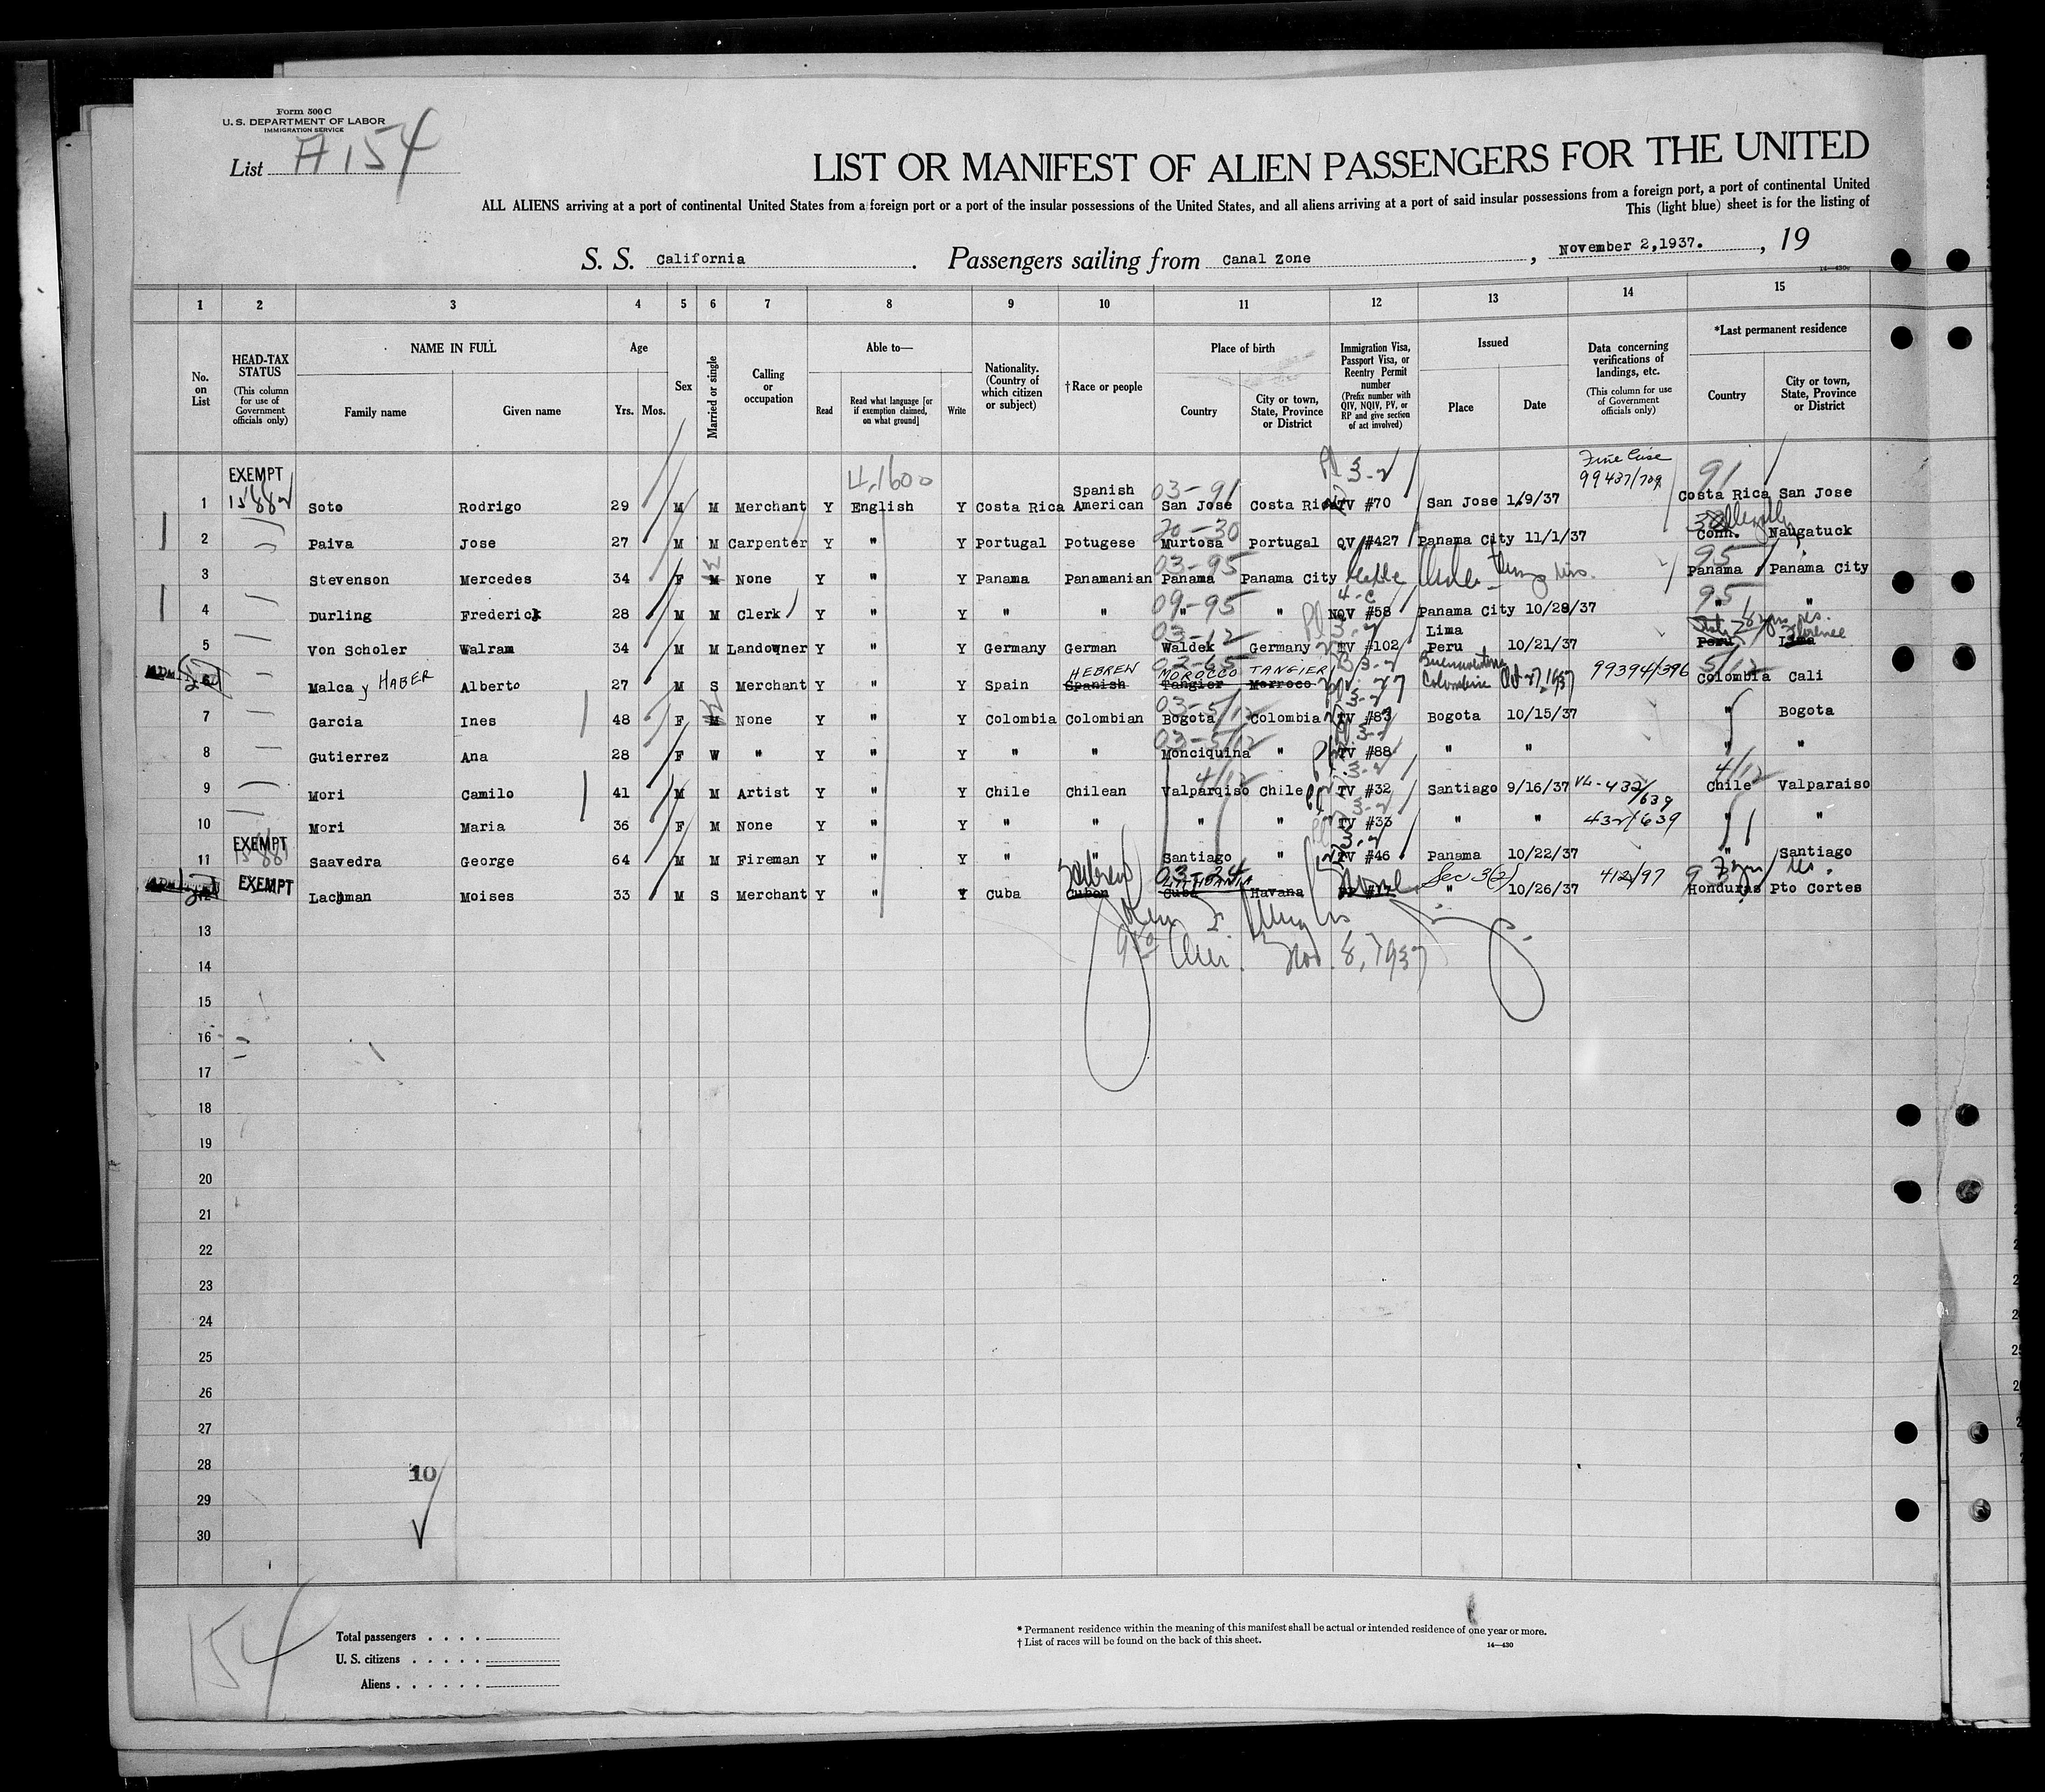 Form 500 C
U. S. DEPARTMENT OF LABOR
IMMIGRATION SERVICE
List A 154
LIST OR MANIFEST OF ALIEN PASSENGERS FOR THE UNITED
ALL ALIENS arriving at a port of continental United States from a foreign port or a port of the insular possessions of the United States, and all aliens arriving at a port of said insular possessions from a foreign port, a port of continental United
This (light blue) sheet is for the listing of
S. S. California. Passengers sailing from Canal Zone, November 2,1937., 19
14—430c
1 2 3 4 5 6 7 8 9 10 11 12 13 14 15
No. on List
HEAD-TAX STATUS (This column for use of Government officials only)
NAME IN FULL Family name Given name
Age Yrs. Mos.
Sex
Married or single
Calling or occupation
Able to— Read Read what language [or if exemption claimed, on what ground] Write
Nationality. (Country of which citizen or subject)
†Race or people
Place of birth Country City or town, State, Province or District
Immigration Visa, Passport Visa, or Reentry Permit number (Prefix number with QIV, NQIV, PV, or RP and give section of act involved)
Issued Place Date
Data concerning verifications of landings, etc. (This column for use of Government officials only)
*Last permanent residence Country City or town, State, Province or District
EXEMPT 4,1600 3-2 Fine Case 99437/709 91
1 Soto Rodrigo 29 M M Merchant Y English Y Costa Rica Spanish American 03-91 San Jose Costa Rica TV #70 San Jose 1/9/37 Costa Rica San Jose
2 Paiva Jose 27 M M Carpenter Y " Y Portugal Potugese 20-30 Murtosa Portugal QV #427 Panama City 11/1/37 Conn. Naugatuck
3 Stevenson Mercedes 34 F M None Y " Y Panama Panamanian 03-95 Panama Panama City 95 Panama Panama City
4 Durling Frederick 28 M M Clerk Y " Y " " 09-95 " " 4-c NQV #58 Panama City 10/28/37 95 " "
5 Von Scholer Walram 34 M M Landowner Y " Y Germany German 03-12 Waldek Germany TV #102 Lima Peru 10/21/37 Peru Lima
6 Malca y HABER Alberto 27 M S Merchant Y " Y Spain HEBREW Spanish 02-65 MOROCCO TANGIER Tangier Morroco 3-2 Buenaventura Colombia Oct 27, 1937 99394/396 5/12 Colombia Cali
7 Garcia Ines 48 F M None Y " Y Colombia Colombian 03-5/12 Bogota Colombia 3-2 TV #83 Bogota 10/15/37 " Bogota
8 Gutierrez Ana 28 F W " Y " Y " " 03-5/12 Monciquina " 3-2 TV #88 " " " "
9 Mori Camilo 41 M M Artist Y " Y Chile Chilean 4/12 Valparqiso Chile 3-2 TV #32 Santiago 9/16/37 VL-432/639 4/12 Chile Valparaiso
10 Mori Maria 36 F M None Y " Y " " " " 3-2 TV #33 " " 432/639 " "
EXEMPT
11 Saavedra George 64 M M Fireman Y " Y " " Santiago " 3-2 TV #46 Panama 10/22/37 " Santiago
EXEMPT
12 Lachman Moises 33 M S Merchant Y " Y Cuba Cuban 03-24 LITHUANIA Cuba Havana PP #17 Sec 3(2) " 10/26/37 412/97 Honduras Pto Cortes
13
Nov. 8, 1937
14
15
16
17
18
19
20
21
22
23
24
25
26
27
28
10
29
30
154
Total passengers
U. S. citizens
Aliens
* Permanent residence within the meaning of this manifest shall be actual or intended residence of one year or more.
† List of races will be found on the back of this sheet.
14—430